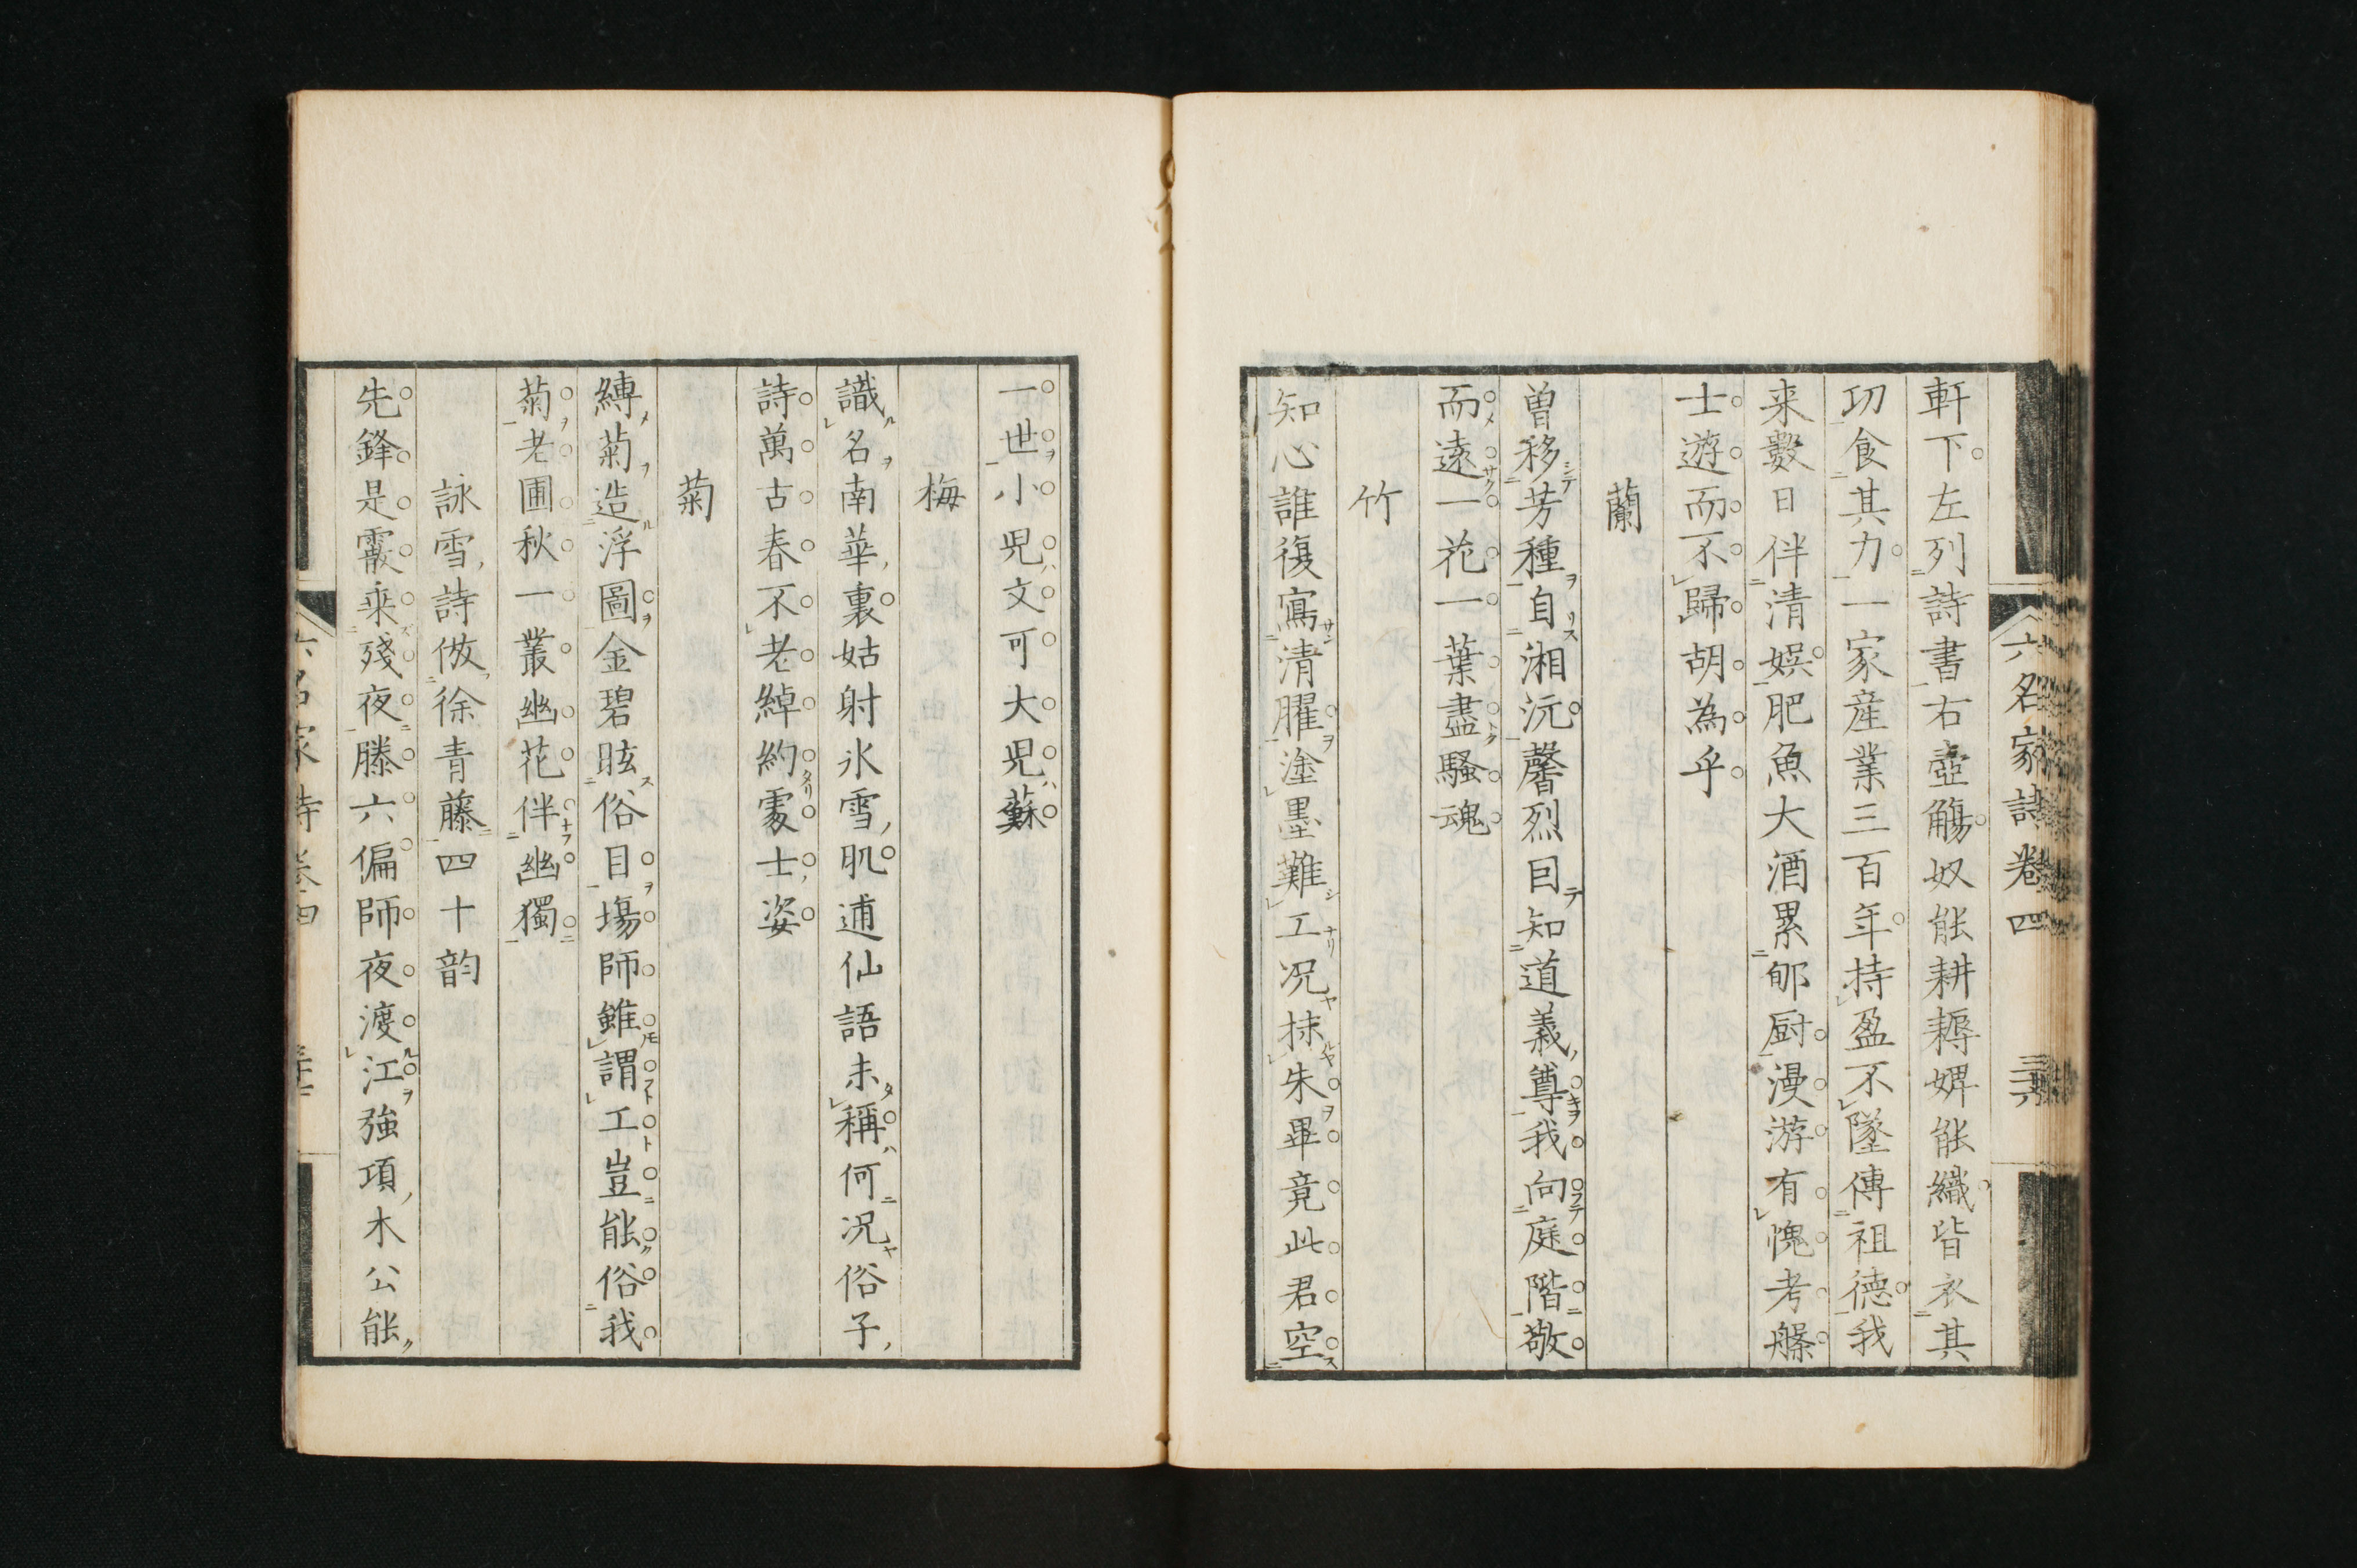 六名家詩卷四
軒下左列詩書右壺觴奴能耕耨婢能織皆衣其
功食其力一家産業三百年持盈不墜傳祖德我
来數日伴清娯肥魚大酒累郇厨漫游有愧考槃
士遊而不歸胡為乎
蘭
曽移芳種自湘沅馨烈囙知道義尊我向庭階敬
而遠一花一葉盡騷魂
竹
知心誰復寫清臞塗墨難工况抹朱畢竟此君空
一世小児文可大児蘇
梅
識名南華裏姑射氷雪肌逋仙語未稱何况俗子
詩萬古春不老綽約處士姿
菊
縛菊造浮圖金碧眩俗目塲師雖謂工豈能俗我
菊老圃秋一叢幽花伴幽獨
詠雪詩倣徐青藤四十韵
先鋒是霰来殘夜滕六偏師夜渡江強項木公能